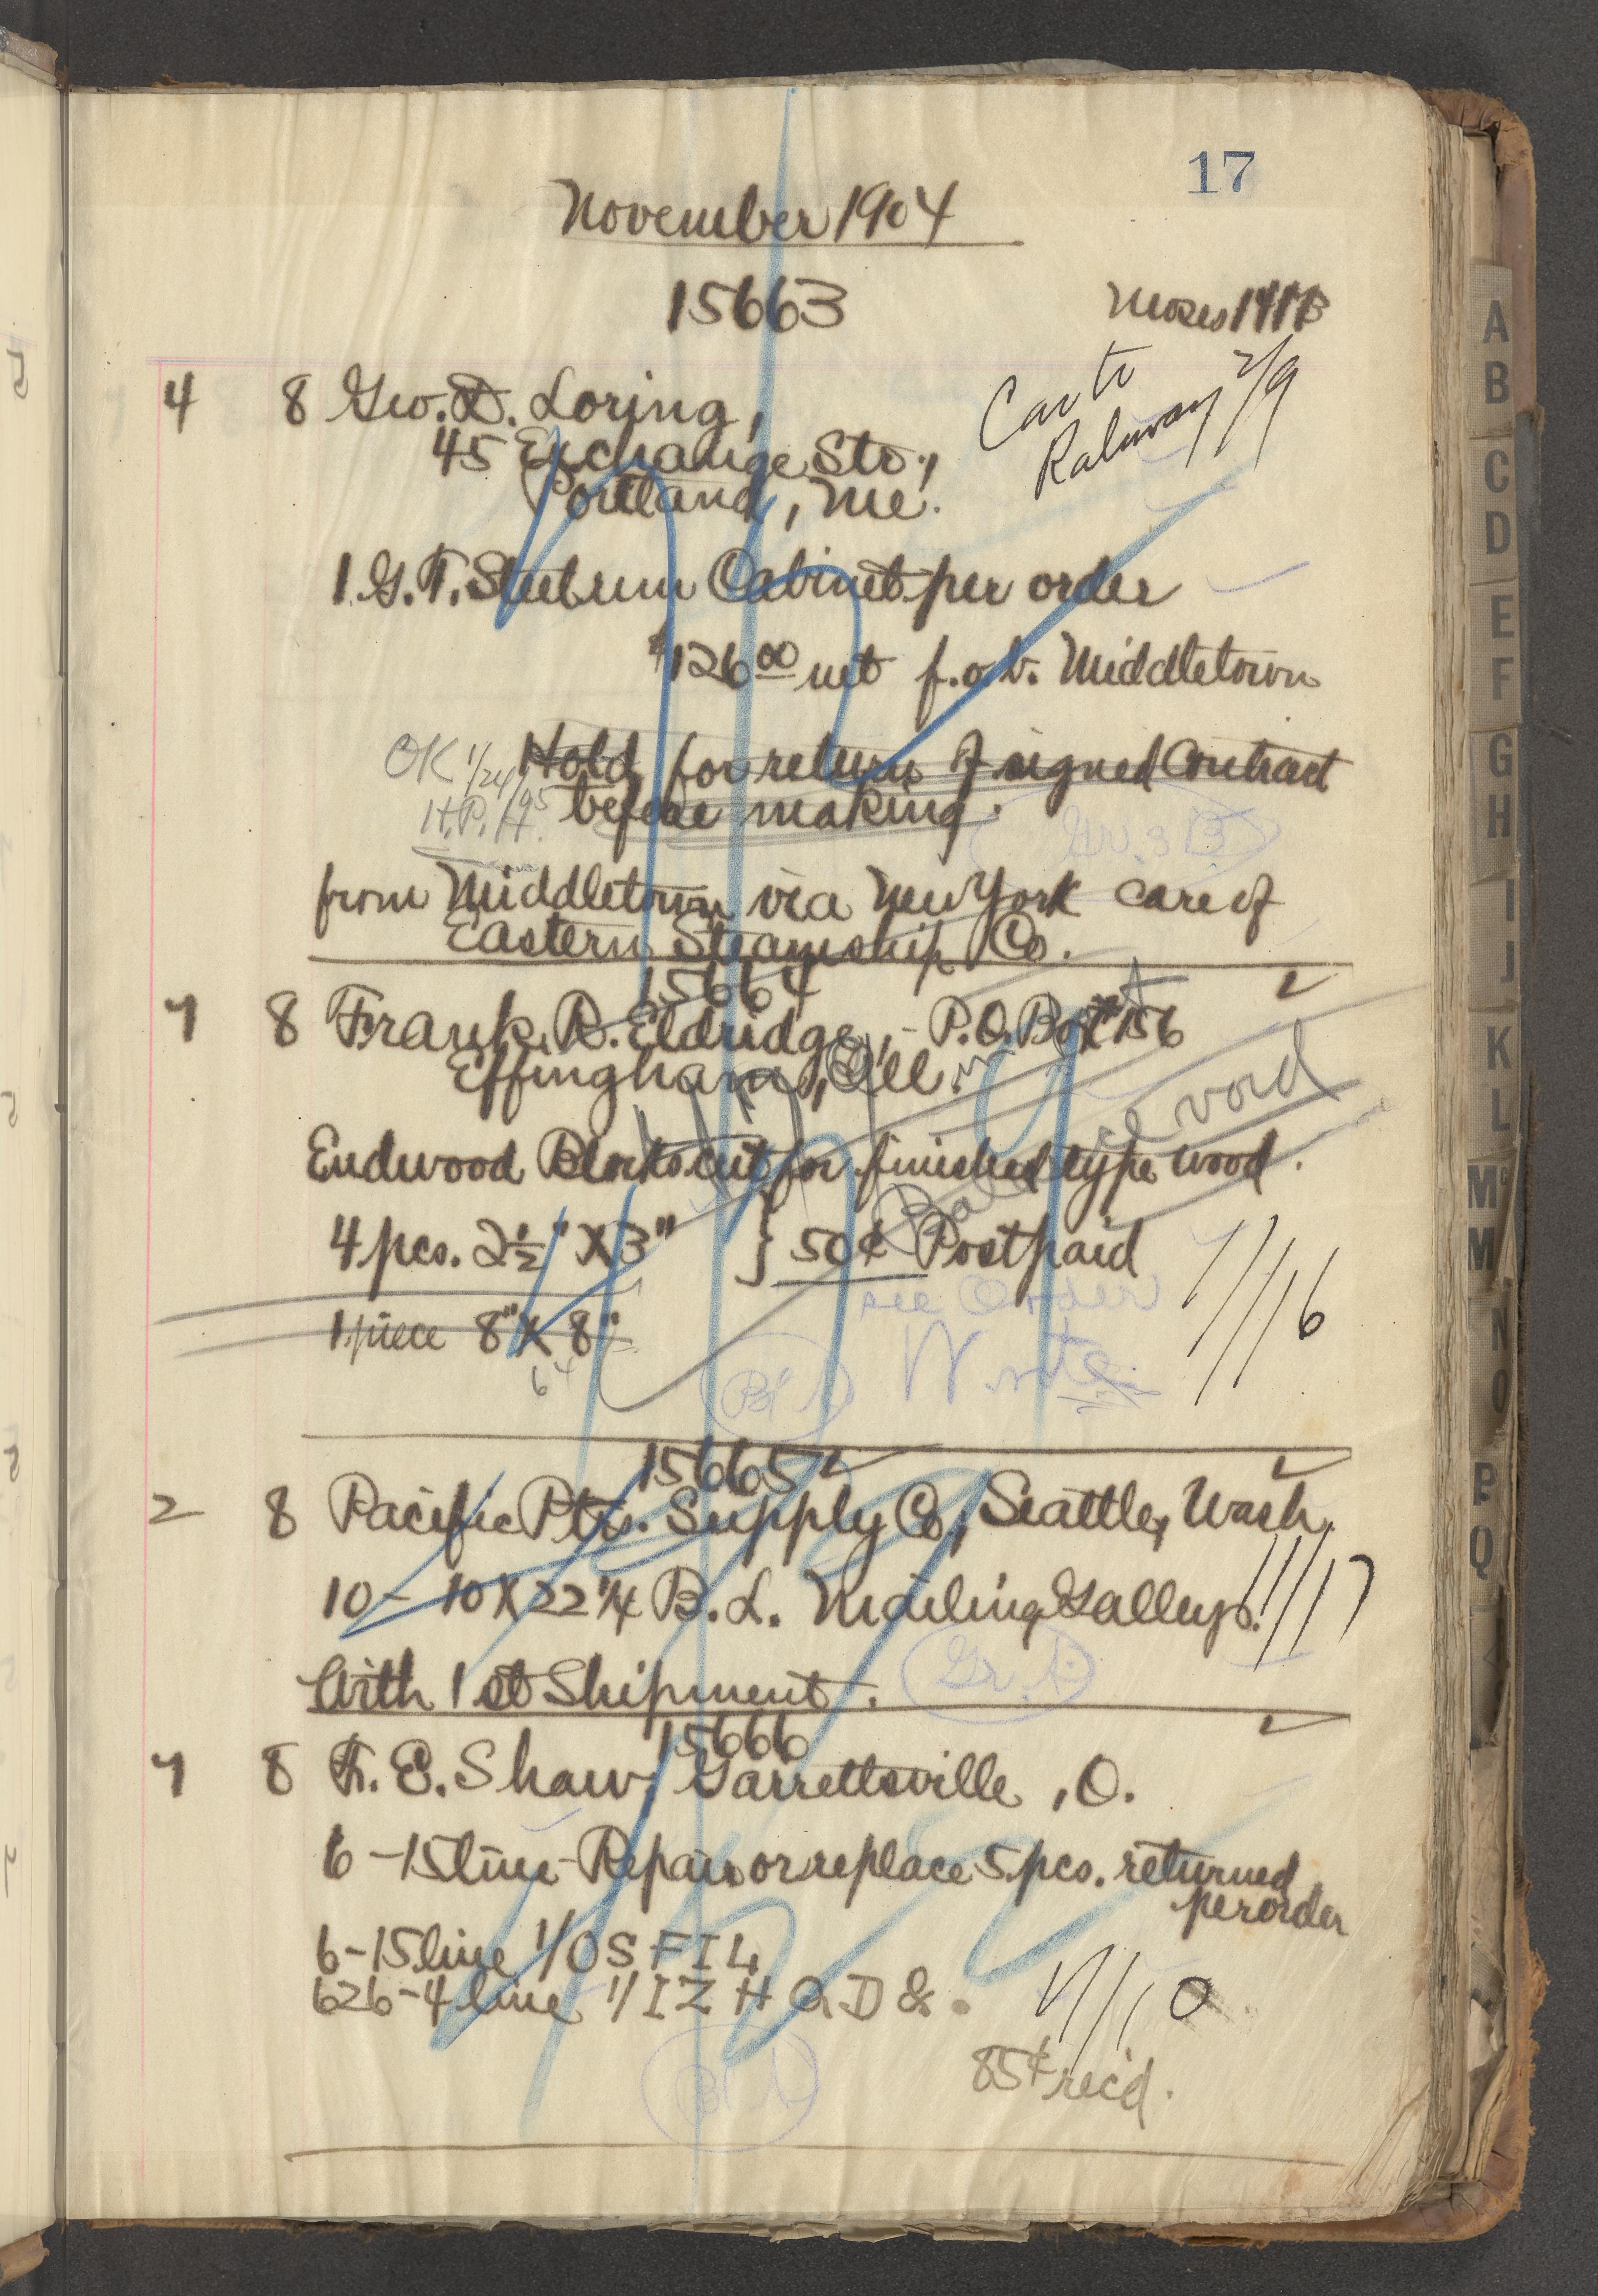 17
November 1904
15663
4 8 Geo. D. Loring,
45 Exchange Str.,
Portland, Me.
Car to
Rahway 2/9
1 G.T. Steel run Cabinet per order
$126.00 net f.o.b. Middletown
OK 1/24/95 Hold for return of signed Contract
H.P.H. before making.
from Middletown via New York care of
Eastern Steamship Co.
15664
7 8 Frank R. Eldridge, - P.O. Box #156
Effingham, Ill.
Balance void
Endwood Blocks cut for finished type wood.
4 pcs. 2½" X 3" } 50¢ Postpaid
see Order
11/16
1 piece 8" X 8"
64
Write
15665
2 8 Pacific Ptrs. Supply Co., Seattle, Wash.
10 - 10 X 22 ¼ B. L. Mailing Galleys.
11/17
With 1st Shipment.
15666
7 8 F. E. Shaw, Garrettsville, O.
6 - 15 line - Repair or replace 5 pcs. returned
per order
6 - 15 line 1/ O S F I L
626 - 4 line 1/ I Z H Q D & .
11/10
85¢ rec'd.
A
B
C
D
E
F
G
H
I
J
K
L
Mc
M
N
O
P
Q